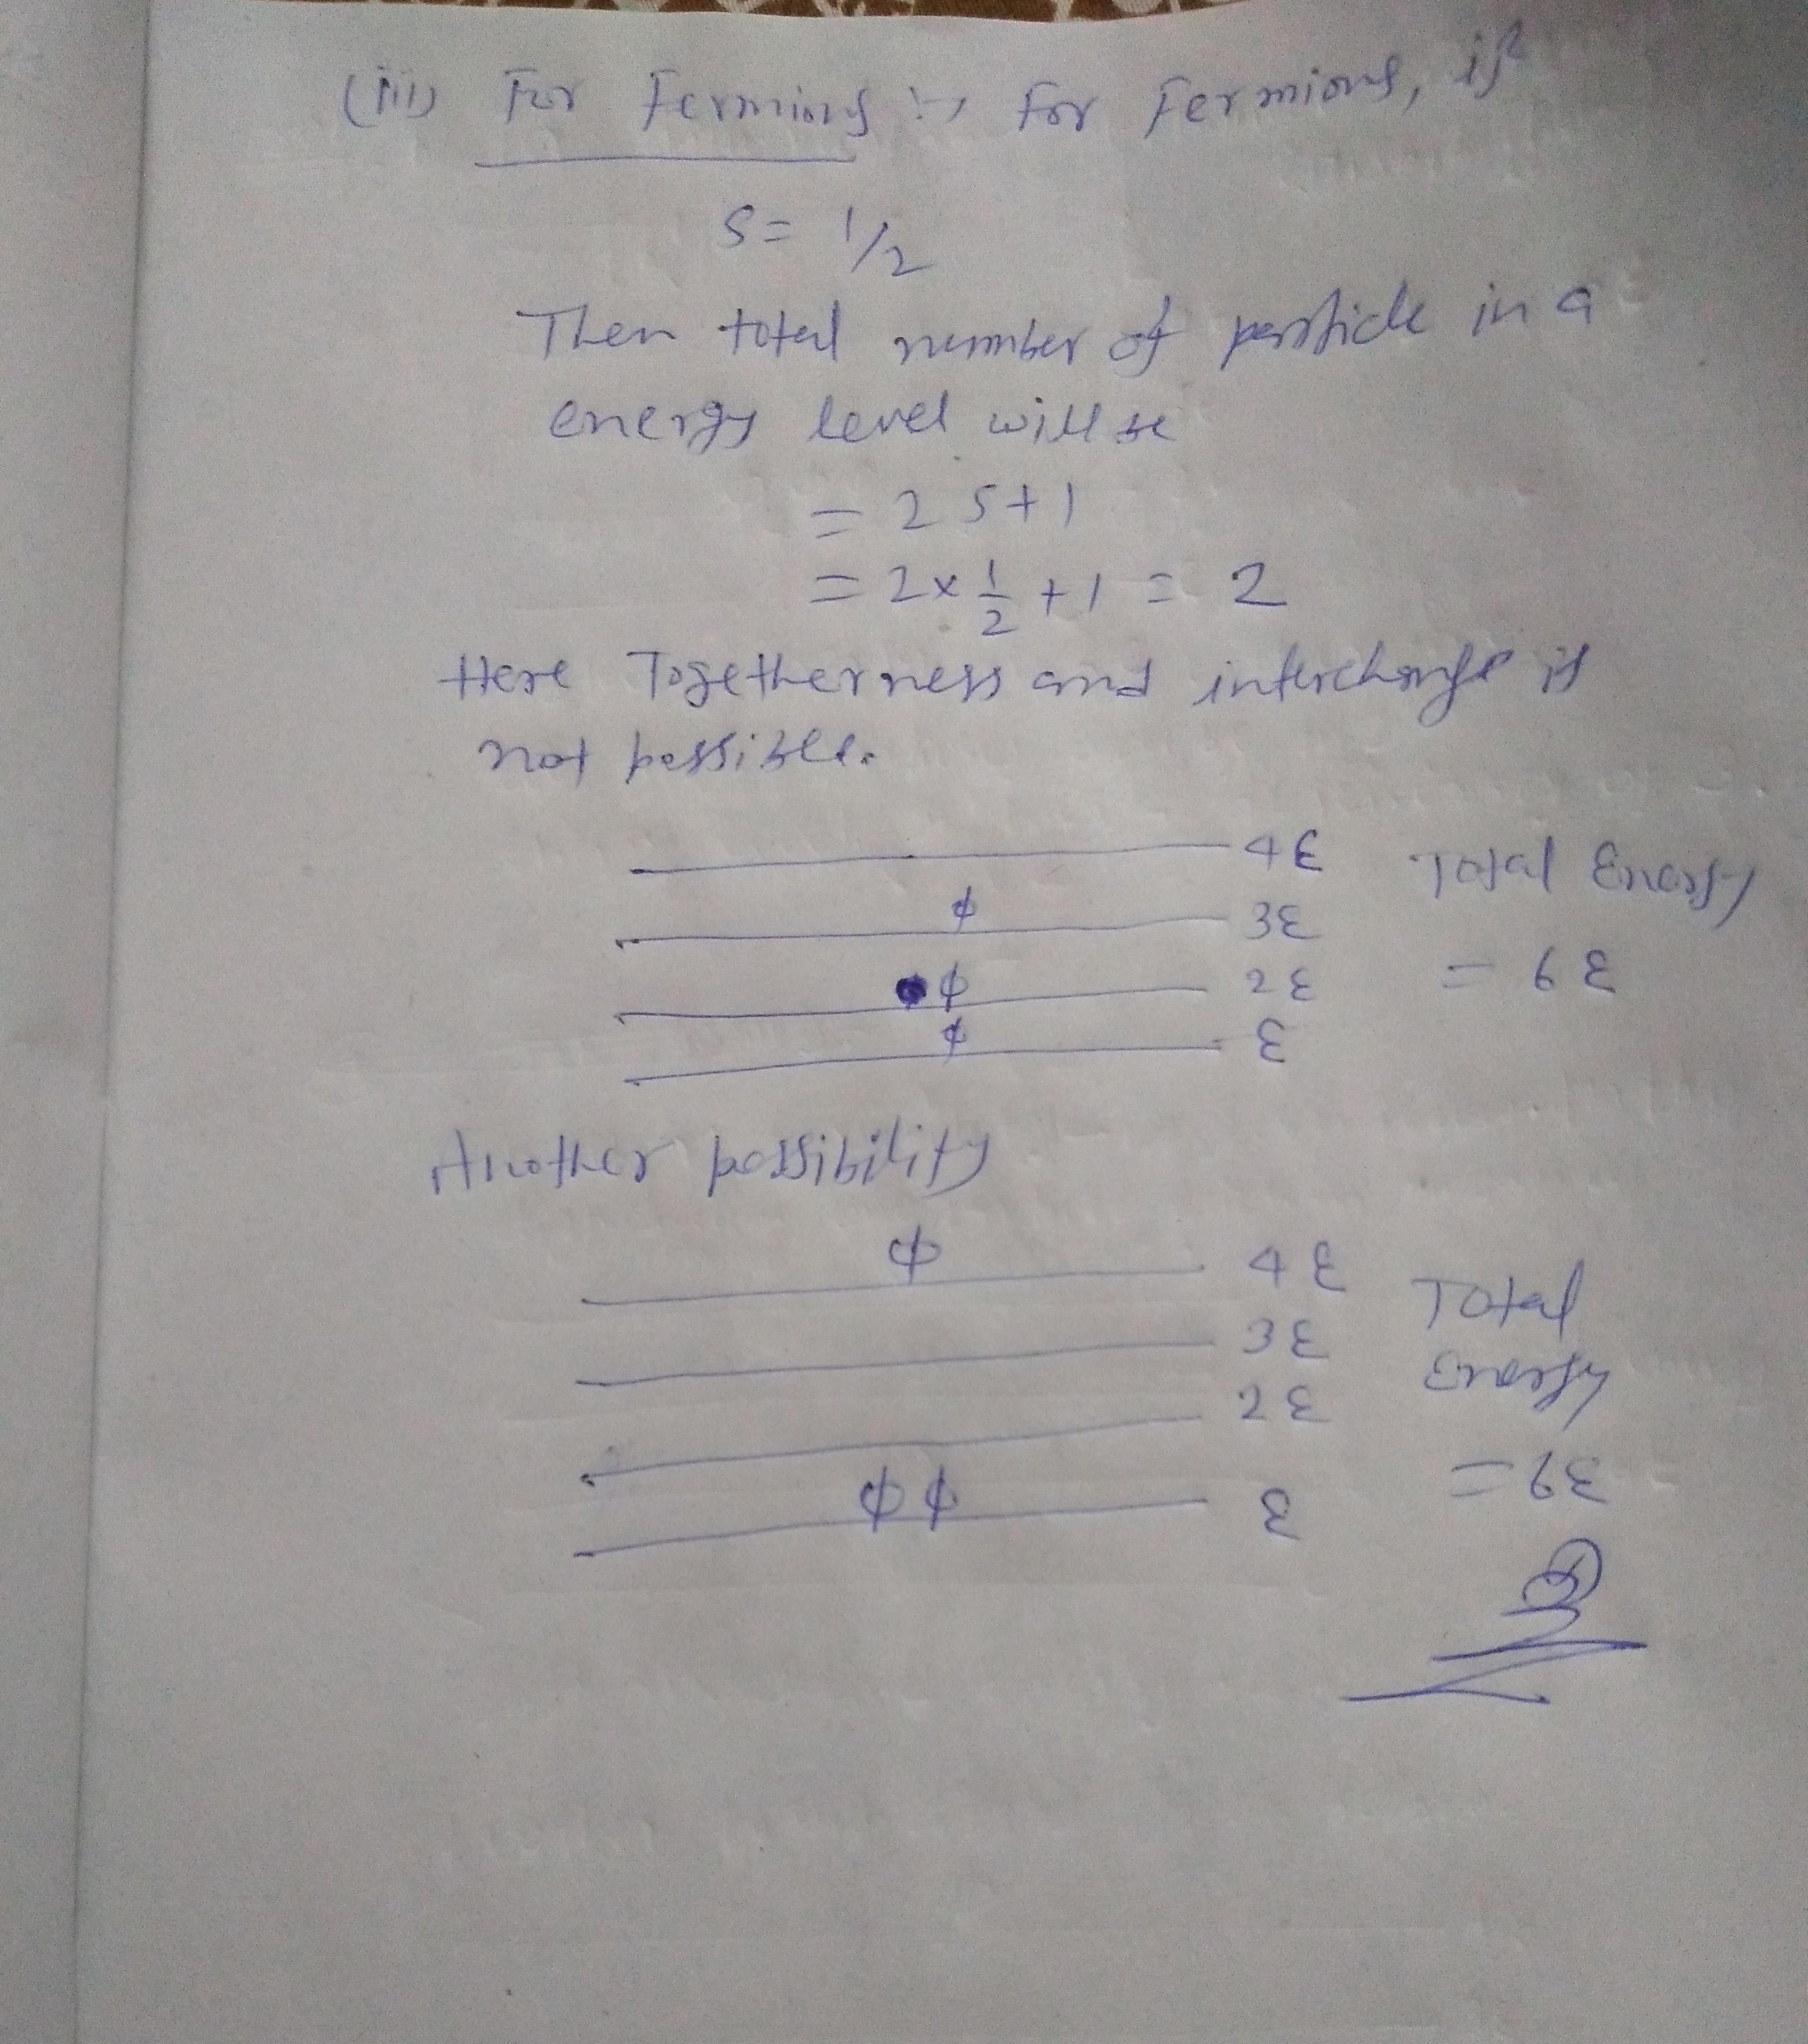 (iii) For Fermions :→ For Fermions, if
S = 1/2
Then total number of particle in a
energy level will be
= 2S+1
= 2×1/2 + 1 = 2
Here Togetherness and interchange is
not possible.
4ε Total Energy
ϕ 3ε
ϕ 2ε = 6ε
ϕ ε
Another possibility
ϕ 4ε Total
3ε Energy
2ε = 6ε
ϕ ϕ ε